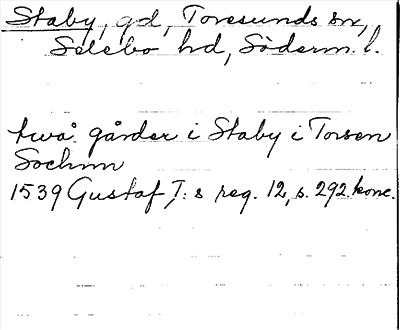 Staby, gd, Toresunds sn,
Selebo hd, Söderm. l.
två gårder i Staby i Torsen
Sochnn
1539 Gustaf I: s reg. 12, s. 292 konc.